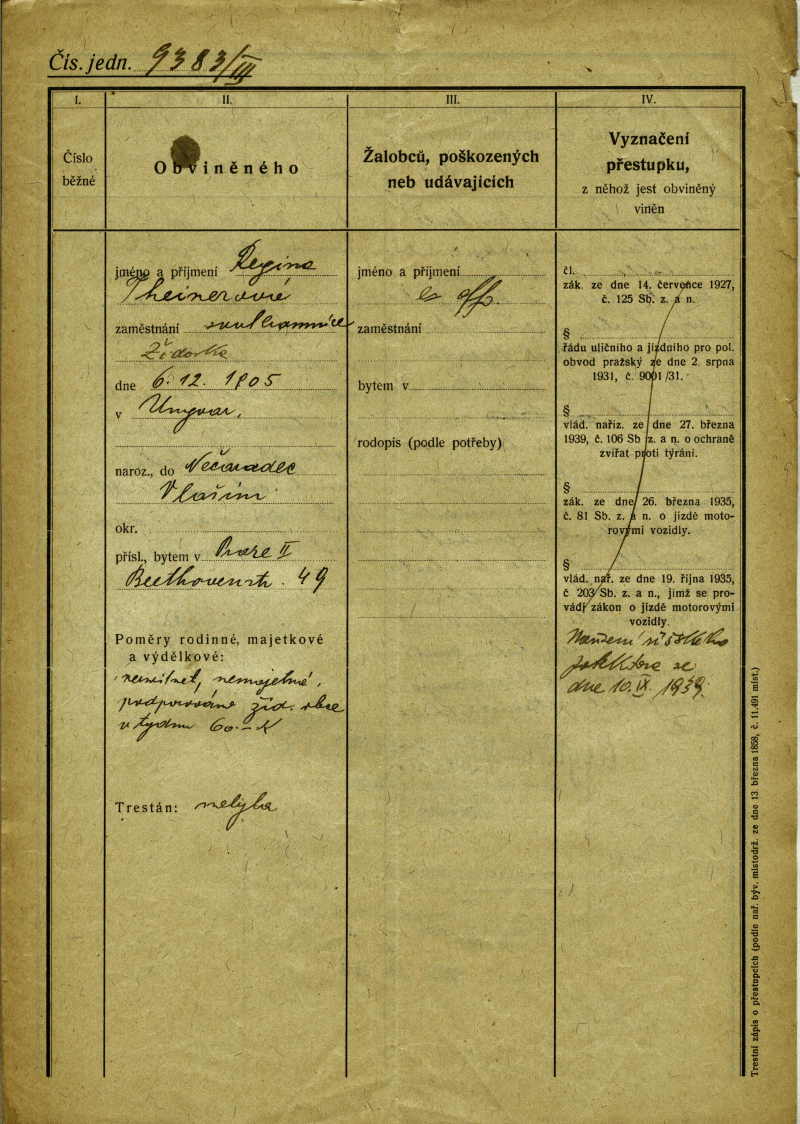 Čís. jedn. 9383/III
I.
II.
III.
IV.
Číslo
běžné
Obviněného
Žalobců, poškozených
neb udávajících
Vyznačení
přestupku,
z něhož jest obviněný
viněn
jméno a příjmení Regina
Theinerová
zaměstnání
Židovka
dne 6. 12. 1905
v Ungvar,
naroz., do Nečaradec
Vlašim
okr.
přísl., bytem v Praze II
Beethovenstr. 49
Poměry rodinné, majetkové
a výdělkové:
nemajetná,
podporována žid. obce
v týdnu 60.-K
Trestán: nebyla
jméno a příjmení
ex offo
zaměstnání
bytem v
rodopis (podle potřeby)
čl.
zák. ze dne 14. července 1927,
č. 125 Sb. z. a n.
§
řádu uličního a jízdního pro pol.
obvod pražský ze dne 2. srpna
1931, č. 9001/31.
§
vlád. naříz. ze dne 27. března
1939, č. 106 Sb z. a n. o ochraně
zvířat proti týrání.
§
zák. ze dne 26. března 1935,
č. 81 Sb. z. a n. o jízdě moto-
rovými vozidly.
§
vlád. nař. ze dne 19. října 1935,
č 203 Sb. z. a n., jímž se pro-
vádí zákon o jízdě motorovými
vozidly.
Nařízení říšského
protektora ze
dne 10. IX. 1939
Trestní zápis o přestupcích (podle nař. býv. místodrž. ze dne 13 března 1858, č. 11.491 míst.)